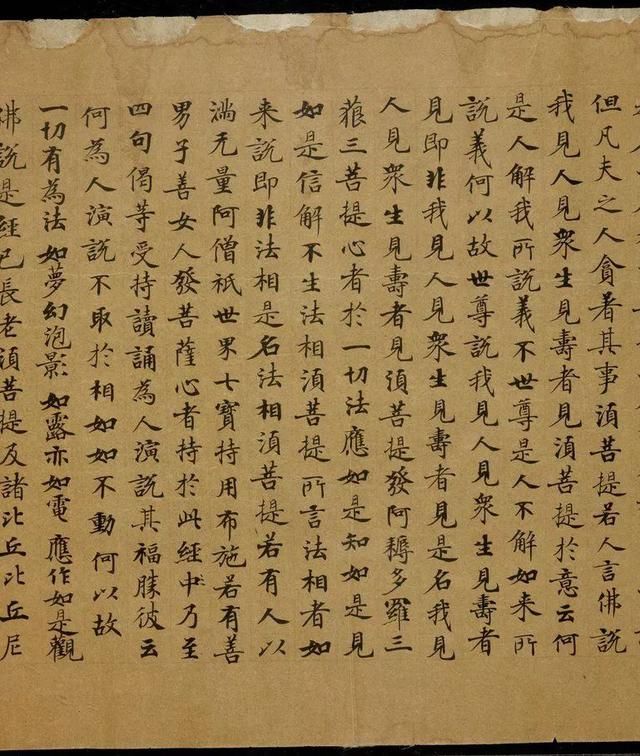 但凡夫之人貪著其事湏菩提若人言佛說
我見人見衆生見壽者見湏菩提於意云何
是人解我所說義不世尊是人不解如来所
說義何以故世尊說我見人見衆生見壽者
見即非我見人見衆生見壽者見是名我見
人見衆生見壽者見湏菩提發阿耨多羅三
藐三菩提心者於一切法應如是知如是見
如是信解不生法相湏菩提所言法相者如
来說即非法相是名法相湏菩提若有人以
滿无量阿僧祇世界七寶持用布施若有善
男子善女人發菩薩心者持於此經中乃至
四句偈等受持讀誦為人演說其福勝彼云
何為人演說不取於相如如不動何以故
一切有為法如夢幻泡影如露亦如電應作如是觀
佛說是經已長老湏菩提及諸比丘比丘尼